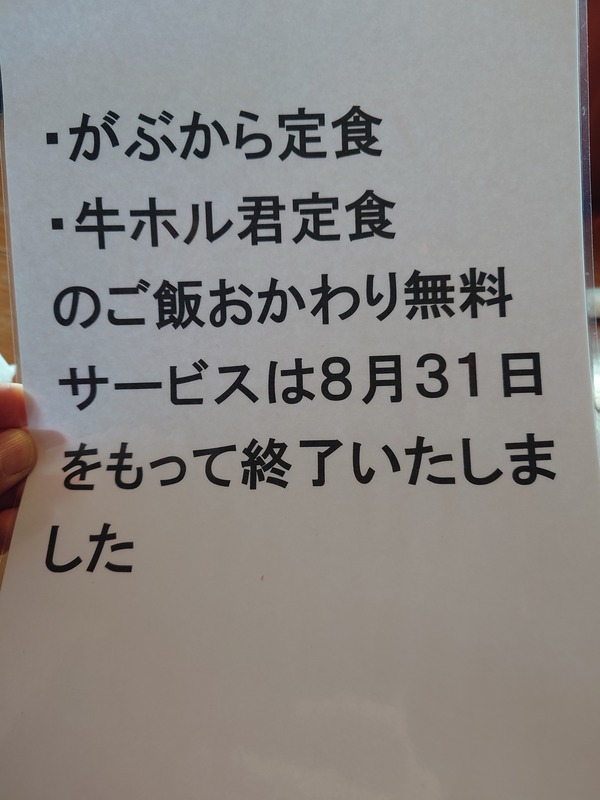 ・がぶから定食
・牛ホル君定食
のご飯おかわり無料
サービスは８月３１日
をもって終了いたしま
した